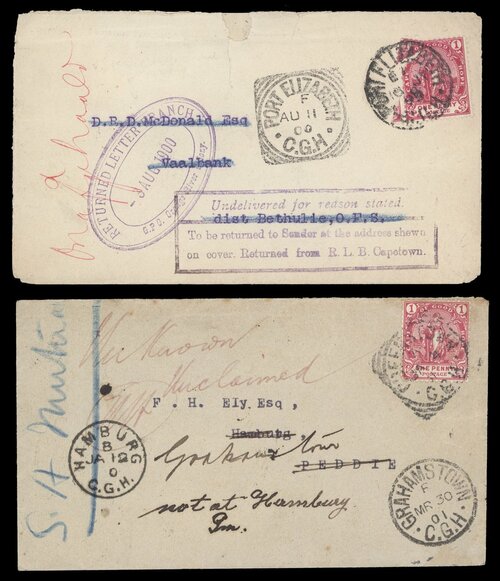 PORT ELIZABETH
1
PORT ELIZABETH
F
AU 11
00
C.G.H.
RETURNED LETTER BRANCH
AUG 1900
G.P.O.
D.E.D.McDonald Esq
Vaalbank
Undelivered for reason stated.
dist Bethulie,O.F.S.
To be returned to Sender at the address shewn
on cover. Returned from R. L. B. Capetown.
1 OF GOOD 1
ONE PENNY
POSTAGE
C.G.H.
Not Known
Unclaimed
F. H. Ely Esq,
Hamburg,
Grahams town
PEDDIE
not at Hamburg
Pm.
HAMBURG
B
JA 12
0
C.G.H.
GRAHAMSTOWN
F
MR 30
01
C.G.H.